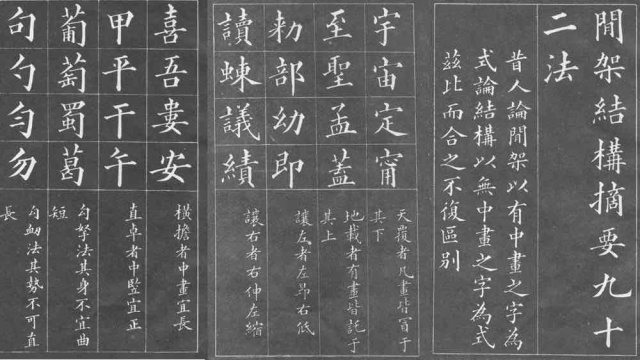 閒架結構摘要九十
二法
昔人論閒架以有中畫之字為
式論結構以無中畫之字為式
茲比而合之不復區別
宇宙定甯
天覆者凡畫皆冒于
其下
至聖孟蓋
地載者有畫皆託于
其上
勅部幼即
讓左者左昂右低
讀蝀議績
讓右者右伸左縮
喜吾婁安
橫擔者中畫宜長
甲平干午
直卓者中竪宜正
葡萄蜀葛
勾拏法其身不宜曲
短
句勺勻勿
勾衂法其勢不可直
長